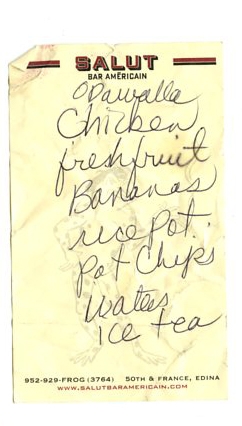 SALUT
BAR AMÉRICAIN
Odawalla
Chicken
fresh fruit
Bananas
rice pot.
Pot Chips
Waters
Ice tea
952-929-FROG (3764) 50TH & FRANCE, EDINA
WWW.SALUTBARAMERICAIN.COM